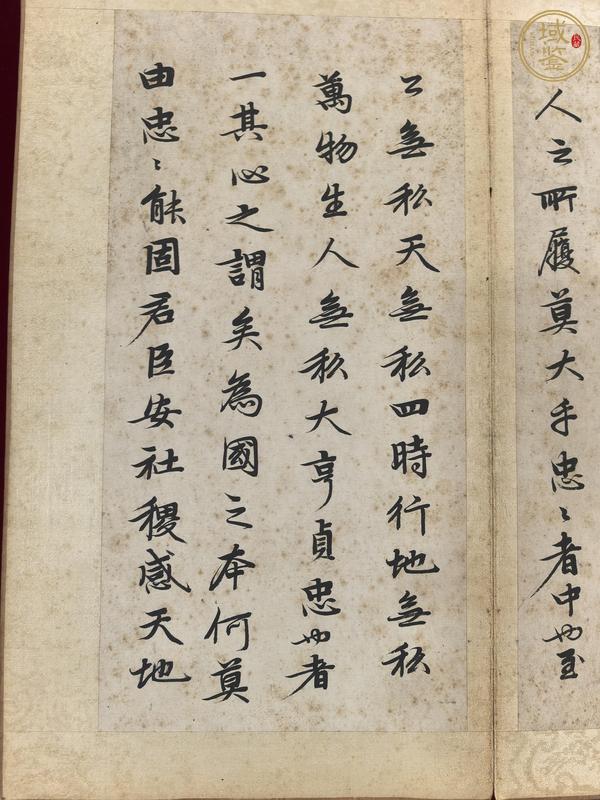 人之所履莫大乎忠〻者中也至
公無私天無私四時行地無私
萬物生人無私大亨貞忠也者
一其心之謂矣為國之本何莫
由忠〻能固君臣安社稷感天地
域鑒